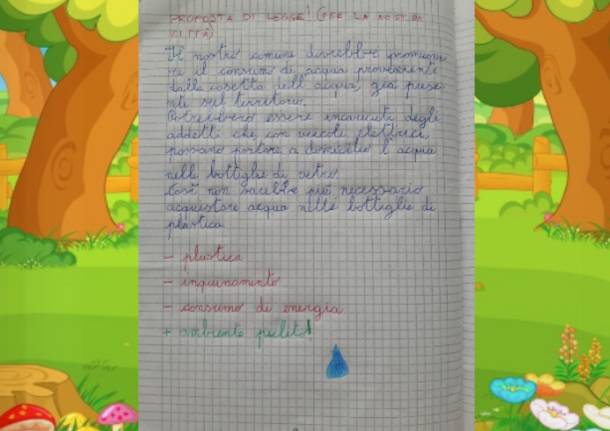 PROPOSTA DI LEGGE! (PER LA NOSTRA
CITTÀ)
Il nostro comune dovrebbe promuove
re il consumo di acqua proveniente
dalla casetta dell'acqua, già prese
nte sul territorio.
Potrebbero essere incaricati degli
addetti che, con veicoli elettrici,
possano portare a domicilio l'acqua
nelle bottiglie di vetro.
Così non sarebbe più necessario
acquistare acqua nelle bottiglie di
plastica.
- plastica
- inquinamento
- consumo di energia
+ ambiente pulito!